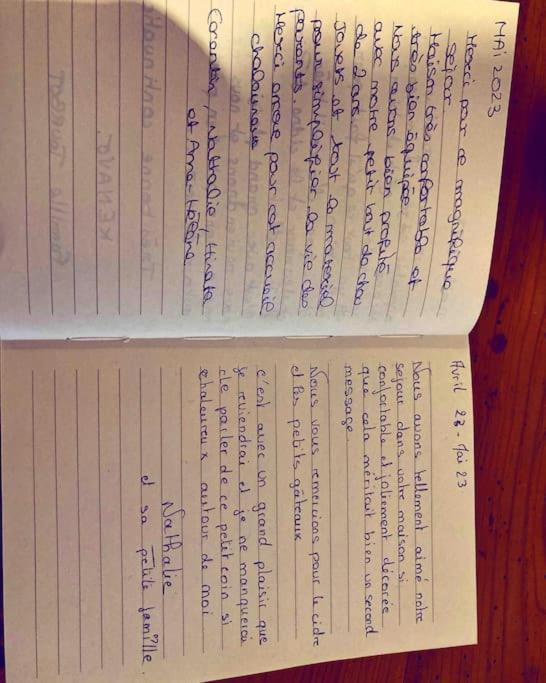 MAI 2023
Merci pour ce magnifique
séjour
Maison très confortable et
très bien équipée
Nous avons bien profité
avec notre petit bout de chou
de 2 ans
Jouets et tout le matériel
pour simplifier la vie des
parents.
Merci encore pour cet accueil
chaleureux
Corentin, Nathalie,
et Anne-Hélène
Avril 23 - Mai 23
Nous avons tellement aimé notre
sejour dans votre maison si
confortable et joliement décorée
que cela méritait bien un second
message
Nous vous remercions pour le cidre
et les petits gâteaux
c'est avec un grand plaisir que
je reviendrai et je ne manquerai
de parler de ce petit coin si
chaleureux autour de moi
Nathalie
et sa petite famille.